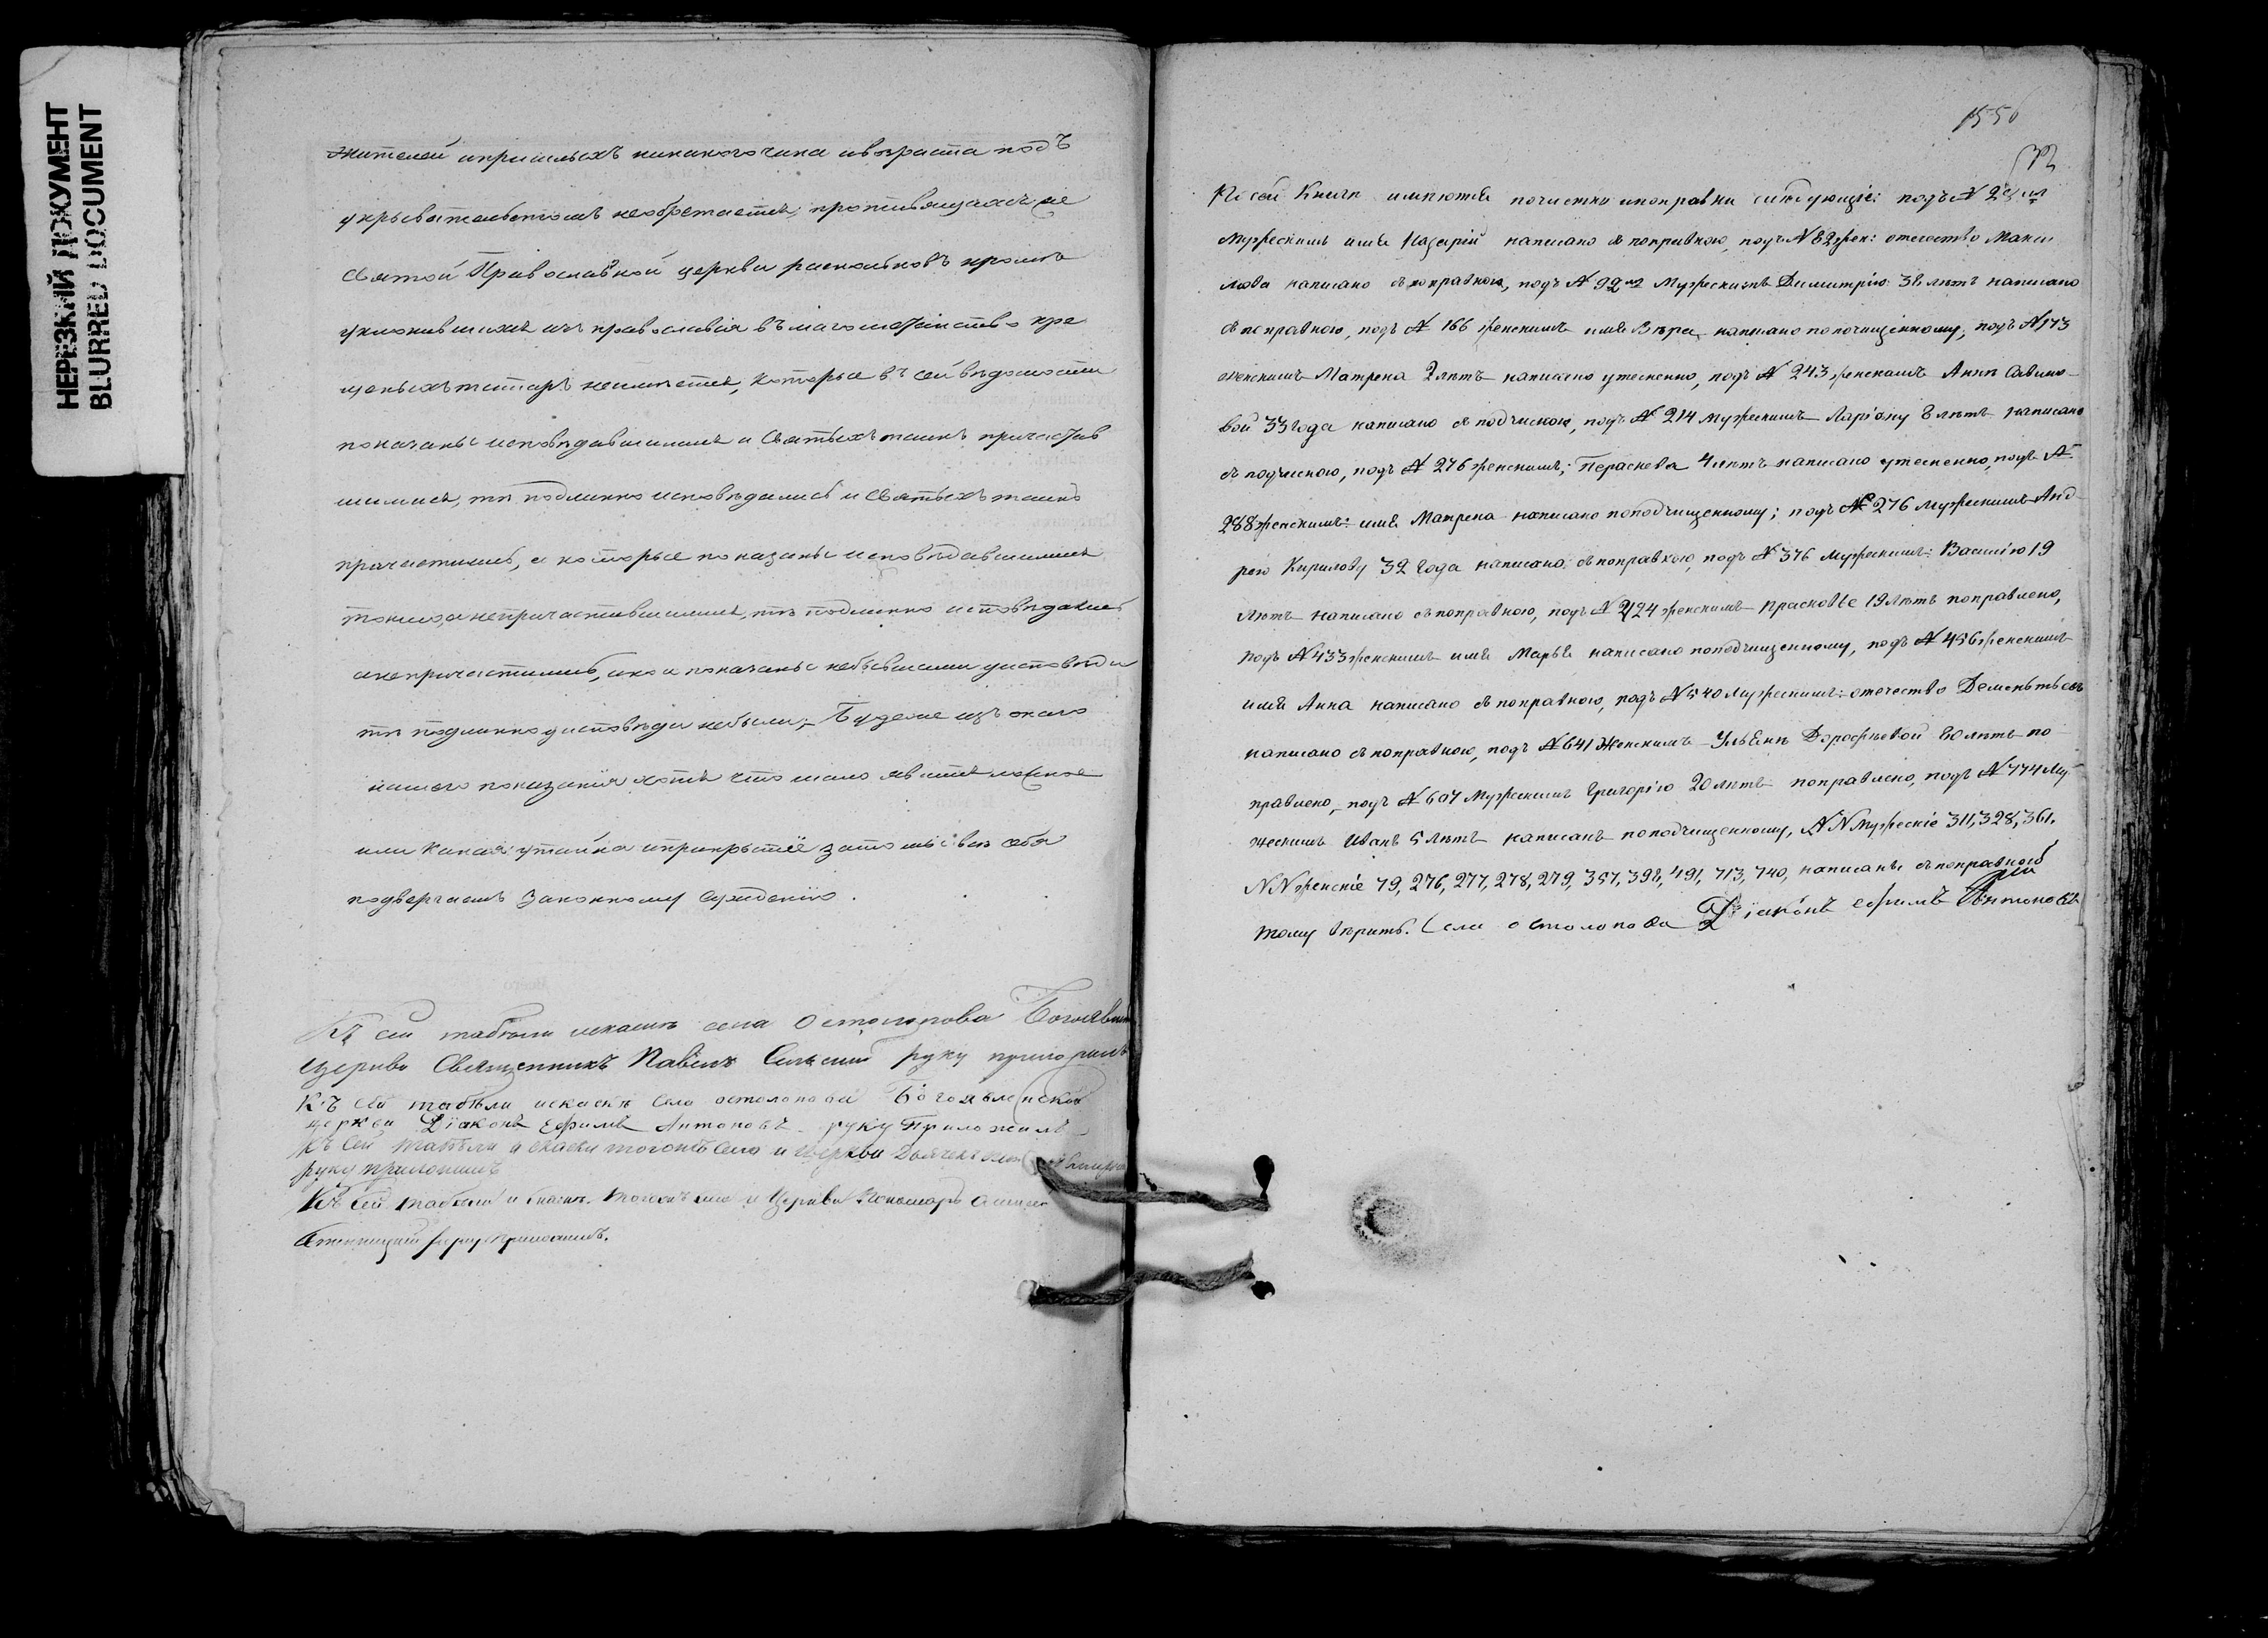 НЕРЕЗКИЙ ДОКУМЕНТ
BLURRED DOCUMENT
жителей и пришлыхъ никакого чина и возраста подъ
укрывательствомъ необретается, противящихся же
святой Православной церкви раскольковъ кромѣ
уклонившихся изъ православія въ магометанство кре
щеныхъ татаръ неимеется, которые в сей ведомости
показаны исповѣдавшимися и Святыхъ таинъ причастив
шимися, тѣ подлинно исповѣдались и Святыхъ таинъ
причастились, а которые показаны исповѣдавшимися
токмо, а непричастившимися, тѣ подлинно исповѣдались
анепричастились, а кои показаны небывшими уисповѣди
тѣ подлинно уисповѣди небыли; Буде же изъ онаго
нашего показанія хотя что мало явится ложное
или какая утайка и прикрытіе зато мы свои себя
подвергаемъ законному сужденію.
Къ сей табели и скаскѣ села Остолопова Богоявлен
церкви Священникъ Павелъ Сельскій руку приложилъ
Къ сей табѣли искаскѣ села остолопова Богоявленской
церкви Діаконъ Ефимъ Антоновъ руку Приложилъ
Къ сей табѣли и скаски тогожъ села и церкви Дьячекъ
руку приложилъ
Къ сей табели и скаскѣ тогожъ села и Церкви Пономарь
руку приложилъ.
1556
Къ сей Книгѣ имѣются почистки ипоправки слѣдующіе: подъ N 2
Мужескимъ имя Назарій написано съ поправкою, подъ N 82 жен: отечество Макси
мова написано съ поправкою, подъ N 92 Мужескимъ Димитрію 38 лѣтъ написано
съ поправкою, подъ N 166 женскимъ имя Вѣра написано попочищенному, подъ N 173
женскимъ Матрена 2 лѣтъ написано утесненно, подъ N 243 женскимъ Аннѣ Савино-
вой 33 года написано съ подчискою, подъ N 214 мужескимъ Ларіону 8 лѣтъ написано
съ подчискою, подъ N 276 женскимъ; Параскева 4 лѣтъ написано утесненно, подъ N
288 женскимъ имя Матрена написано поподчищенному; подъ N 276 мужескимъ Анд
рею Кирилову 32 года написано съ поправкою, подъ N 376 мужескимъ: Василію 19
лѣтъ написано съ поправкою, подъ N 424 женскимъ Прасковье 19 лѣтъ поправлено,
подъ N 433 женскимъ имя Марья написано поподчищенному, подъ N 456 женскимъ
имя Анна написано съ поправкою, подъ N 540 Мужескимъ: отечество Дементьевъ
написано съ поправкою, подъ N 641 Женскимъ Ульянѣ Дорофѣевой 80 лѣтъ по
правлено, подъ N 607 Мужескимъ Григорію 20 лѣтъ поправлено, подъ N 774 Му
жескимъ Иванъ 5 лѣтъ написанъ поподчищенному, NN Мужескіе 311, 328, 361.
NN женскіе 79, 276, 277, 278, 279, 357, 398, 491, 713, 740, написаны съ поправкой
тому вѣрить. Села остолопова Діаконъ Ефимъ Антоновъ